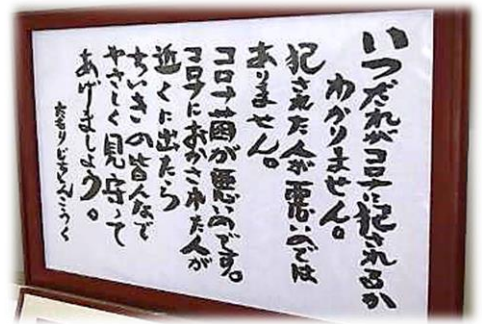 いつだれがコロナに犯されるか
わかりません。
犯された人が悪いのでは
ありません。
コロナ菌が悪いのです。
コロナにおかされた人が
近くに出たら
ちいきの皆んなで
やさしく見守って
あげましょう。